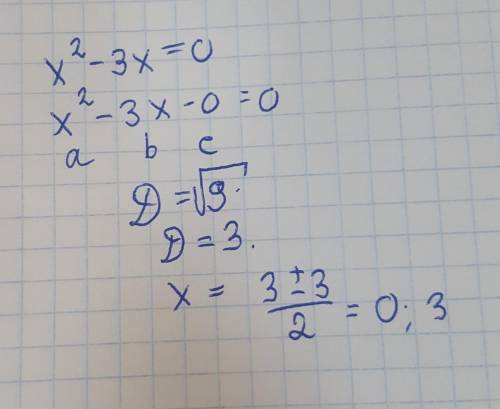 x² - 3x = 0
x² - 3x - 0 = 0
a b c
D = √9.
D = 3.
x = (3 ± 3)/2 = 0; 3